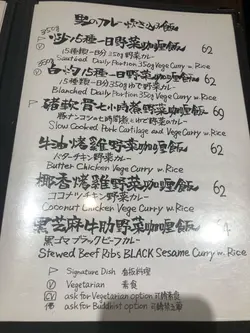 野のカレー炊き込み飯
350g
炒15種一日野菜咖喱飯 62
15種類一日分350g野菜カレー
Sauteed Daily Portion 350g Vege Curry w. Rice
白灼15種一日野菜咖喱飯 62
15種類一日分350gゆで野菜カレー
Blanched Daily Portion 350g Vege Curry w. Rice
豬軟骨七小時煮野菜咖喱飯
豚ナンコツの七時間煮込みと野菜のカレー
Slow Cooked Pork Cartilage and Vege Curry w. Rice
牛油烤雞野菜咖喱飯 62
バターチキン野菜カレー
Butter Chicken Vege Curry w. Rice
椰香烤雞野菜咖喱飯 62
ココナツチキン野菜カレー
Coconut Chicken Vege Curry w. Rice
黑芝麻牛肋野菜咖喱飯
黒ゴマブラックビーフカレー
Stewed Beef Ribs BLACK Sesame Curry w. Rice
Signature Dish 看板料理
V Vegetarian 素食
ask for Vegetarian option 可轉素食
ask for Buddhist option 可轉